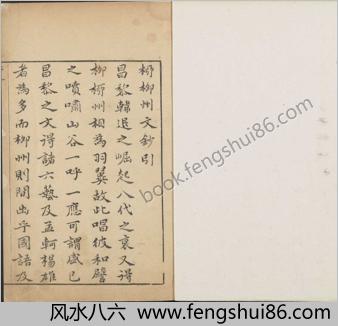 柳柳州文鈔引
昌黎韓退之崛起八代之衰又得
柳柳州相為羽翼故此唱彼和譬
之噴嘯山谷一呼一應可謂盛已
昌黎之文得諸六藝及孟軻楊雄
者為多而柳州則間出乎國語及
book.fengshui86.com
风水八六 www.fengshui86.com